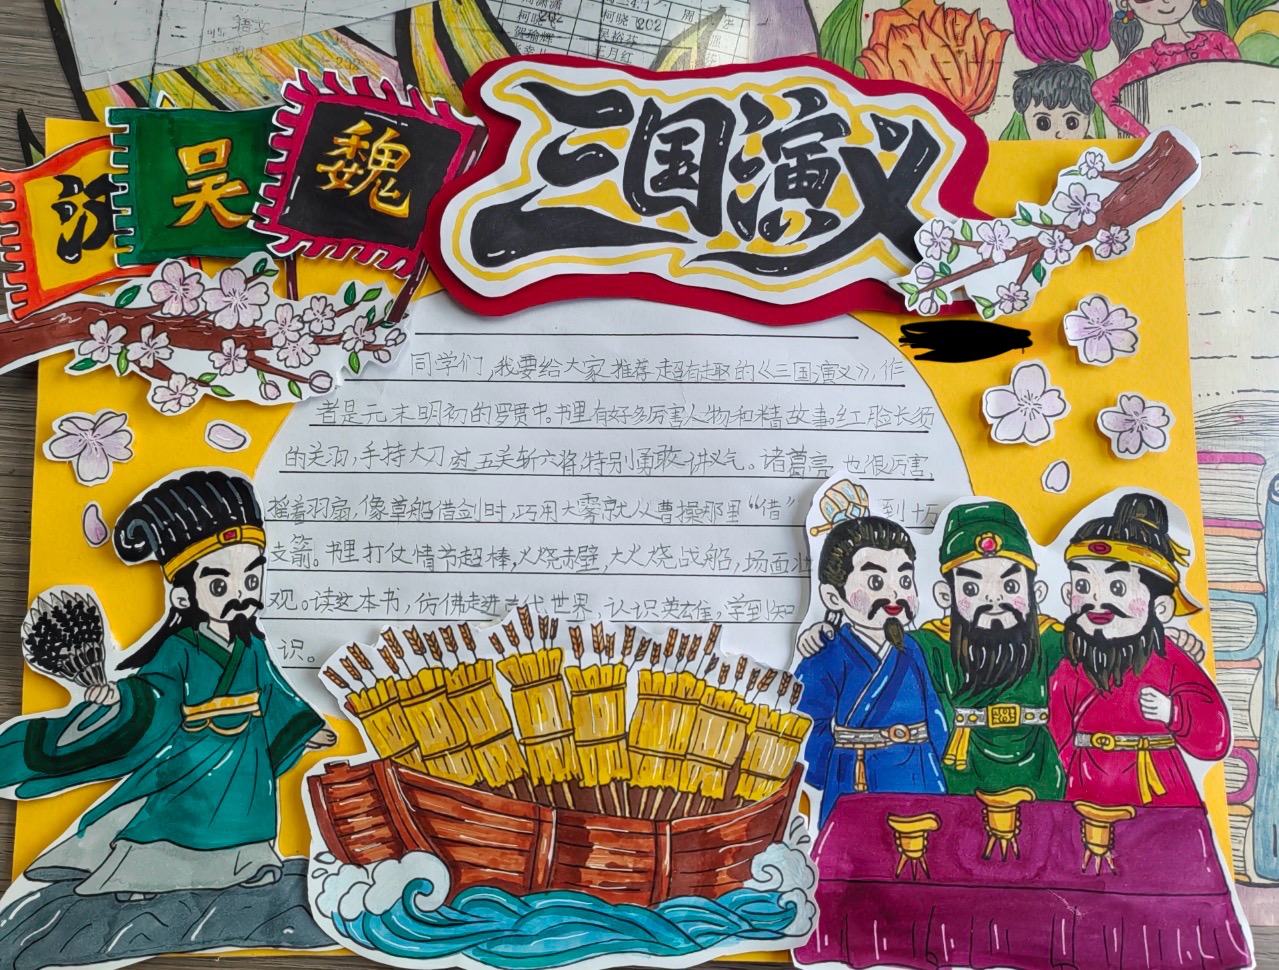 三国演义
魏
吴
同学们,我要给大家推荐超有趣的《三国演义》,作
者是元末明初的罗贯中。书里有好多厉害人物和精故事。红脸长须
的关羽,手持大刀过五关斩六将,特别勇敢讲义气。诸葛亮也很厉害,
摇着羽扇,像草船借剑时,巧用大雾就从曹操那里“借” 到十万
支箭。书里打仗情节超棒,火烧赤壁,大火烧战船,场面壮
观。读这本书,仿佛走进古代世界,认识英雄,学到知
识。
语文